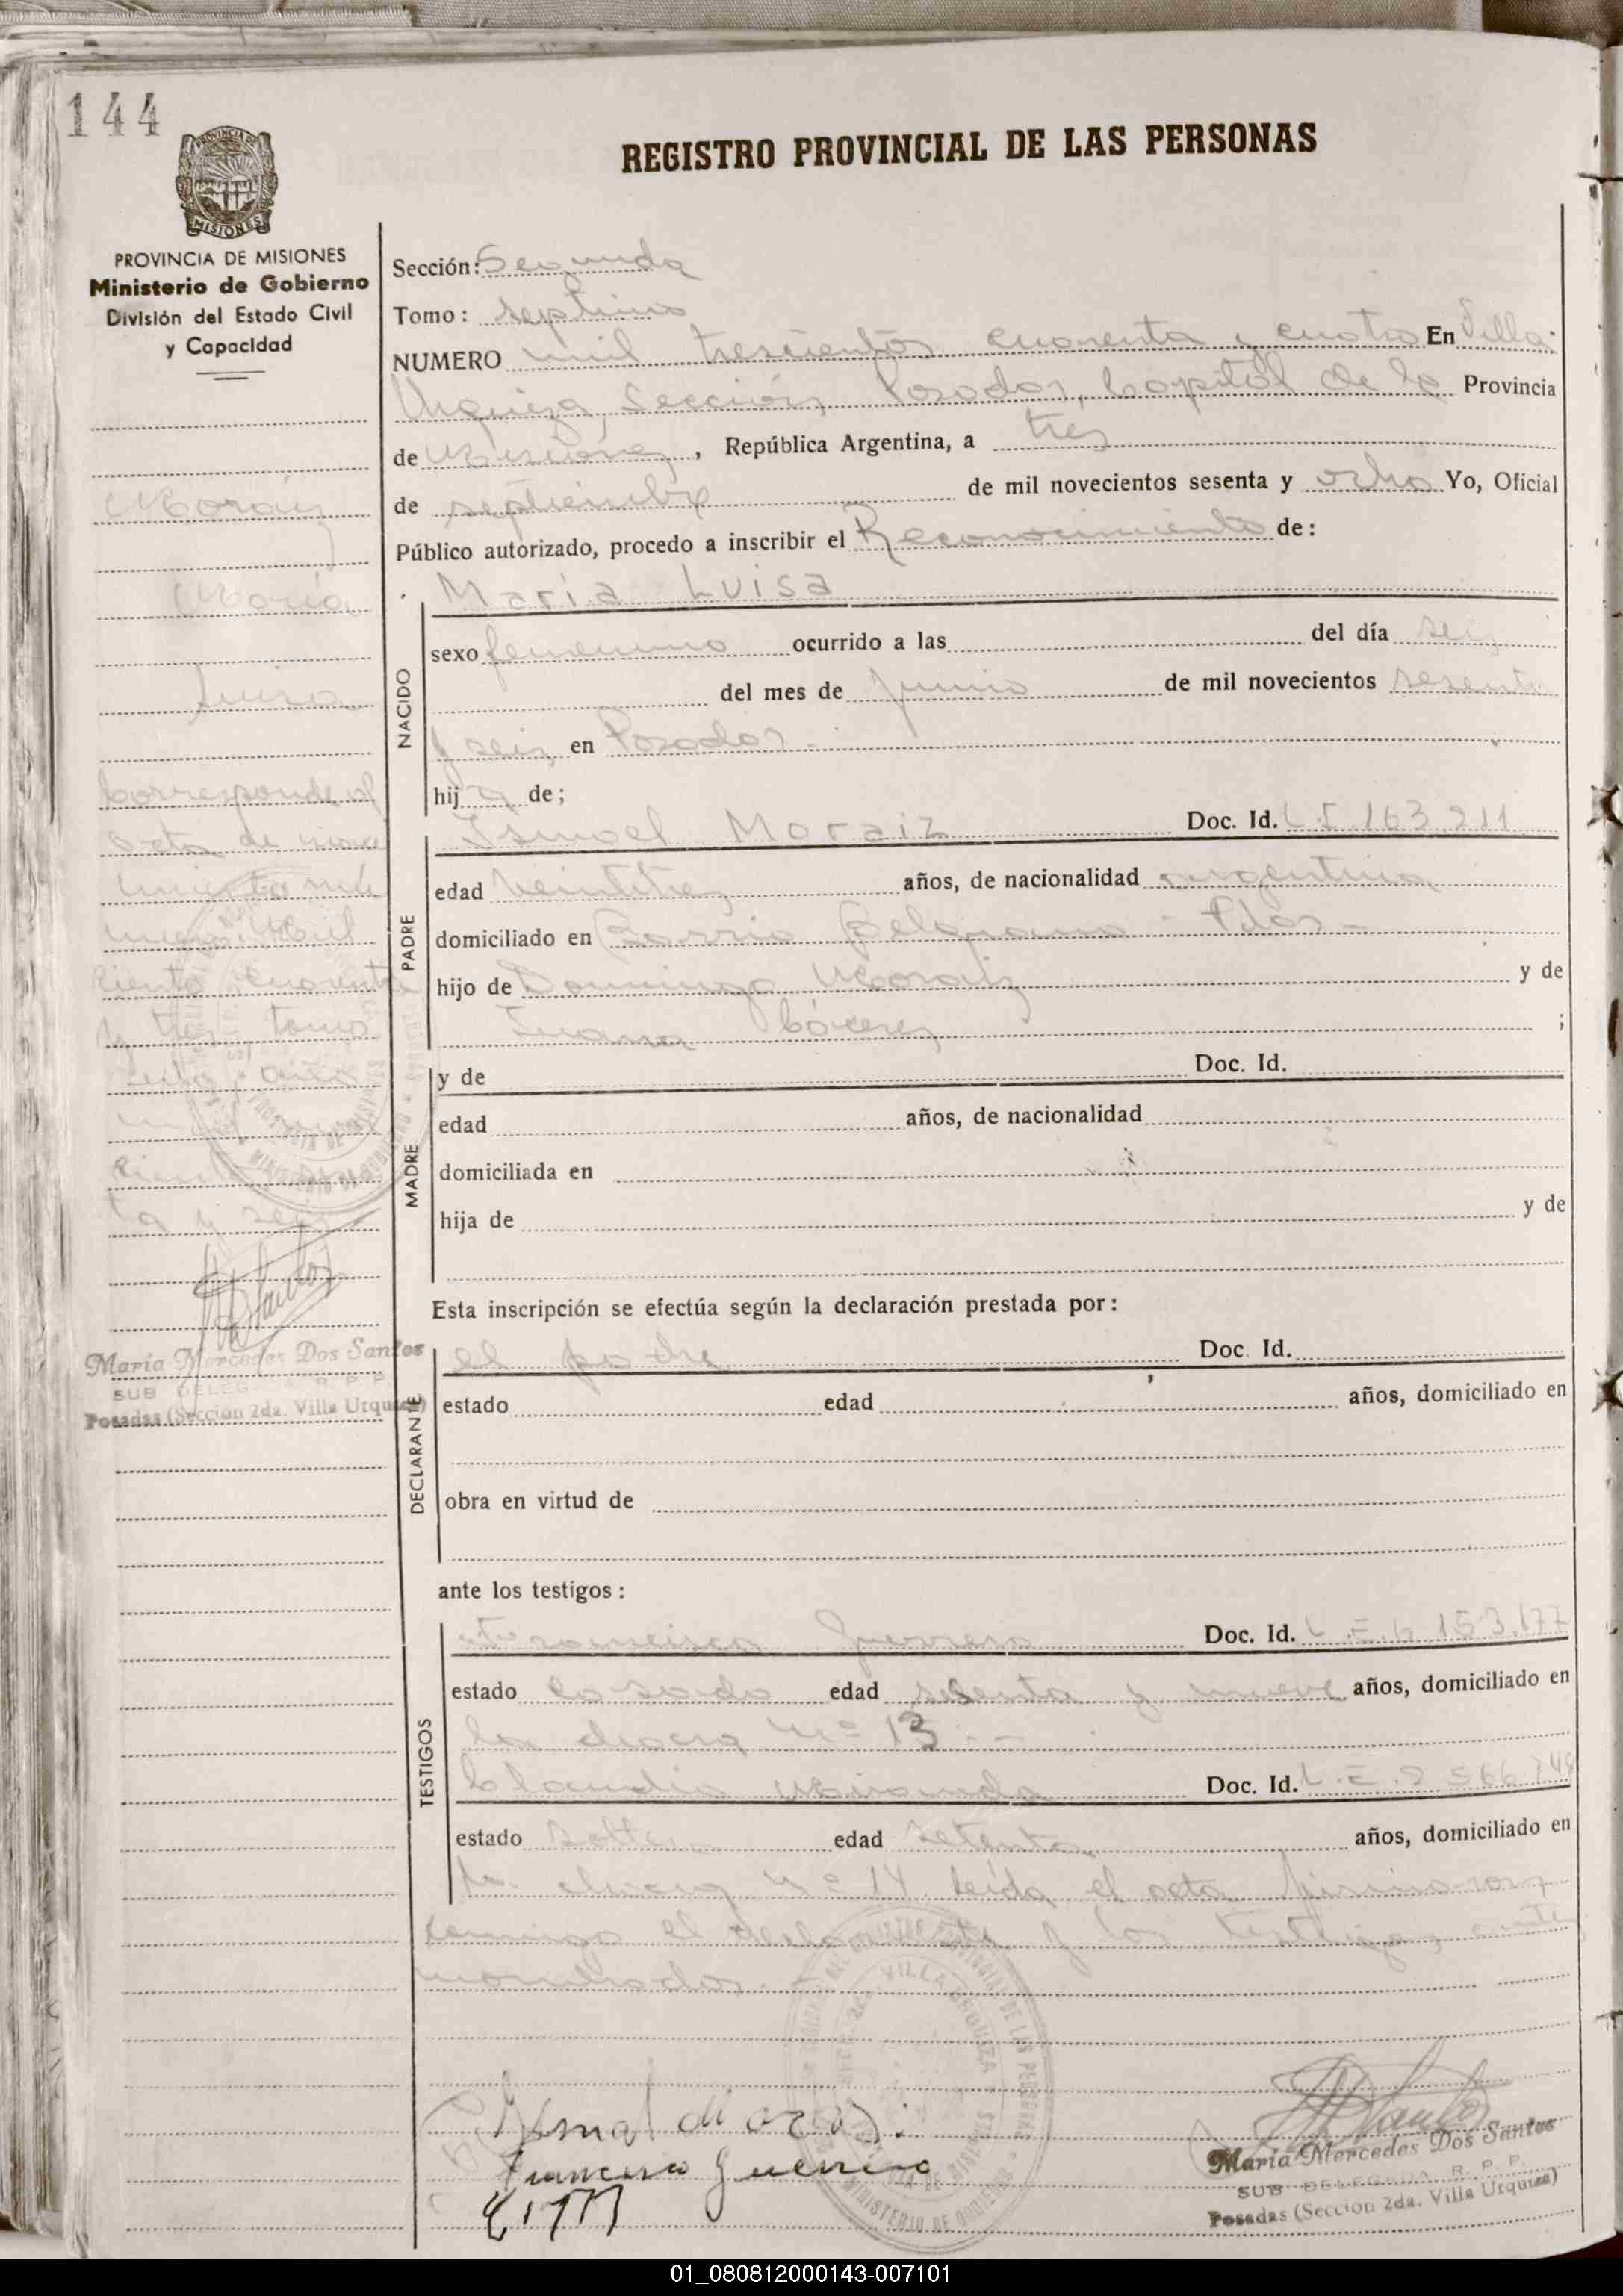 144
REGISTRO PROVINCIAL DE LAS PERSONAS
PROVINCIA DE MISIONES
MISIONES
PROVINCIA DE MISIONES
Ministerio de Gobierno
División del Estado Civil
y Capacidad
Moraiz
María
Luisa
Corresponde al
acta de naci
miento nú
mero Mil
ciento cuarenta
y tres tomo
María Mercedes Dos Santos
SUB DELEGADA R. P. P.
Posadas (Sección 2da. Villa Urquiza)
Sección: Segunda
Tomo: septimo
NUMERO mil trescientos cuarenta y cuatro En Villa
Urquiza, Sección Posadas, Capital de la Provincia
de Misiones, República Argentina, a tres
de septiembre de mil novecientos sesenta y ocho Yo, Oficial
Público autorizado, procedo a inscribir el Reconocimiento de:
NACIDO
María Luisa
sexo femenino ocurrido a las del día seis
del mes de junio de mil novecientos sesenta
y seis en Posadas.
hija de;
PADRE
Ismael Moraiz Doc. Id. L.I. 163.211
edad veintitres años, de nacionalidad argentina
domiciliado en Barrio Belgrano - Pdas -
hijo de Domingo Moraiz y de
Juana Cáceres ;
MADRE
y de Doc. Id.
edad años, de nacionalidad
domiciliada en
hija de y de
Esta inscripción se efectúa según la declaración prestada por:
DECLARANTE
el padre Doc. Id.
estado edad años, domiciliado en
obra en virtud de
ante los testigos:
TESTIGOS
Francisco Guerrero Doc. Id. L.E. 153.177
estado casado edad sesenta y nueve años, domiciliado en
la chacra Nº 13.-
Claudio Miranda Doc. Id. L.E. 2.566.749
estado soltero edad setenta años, domiciliado en
la chacra Nº 14 leída el acta firman
conmigo el declarante y los testigos ante
nombrados.-
Francisco Guerrero
María Mercedes Dos Santos
SUB DELEGADA R. P. P.
Posadas (Sección 2da. Villa Urquiza)
01_080812000143-007101